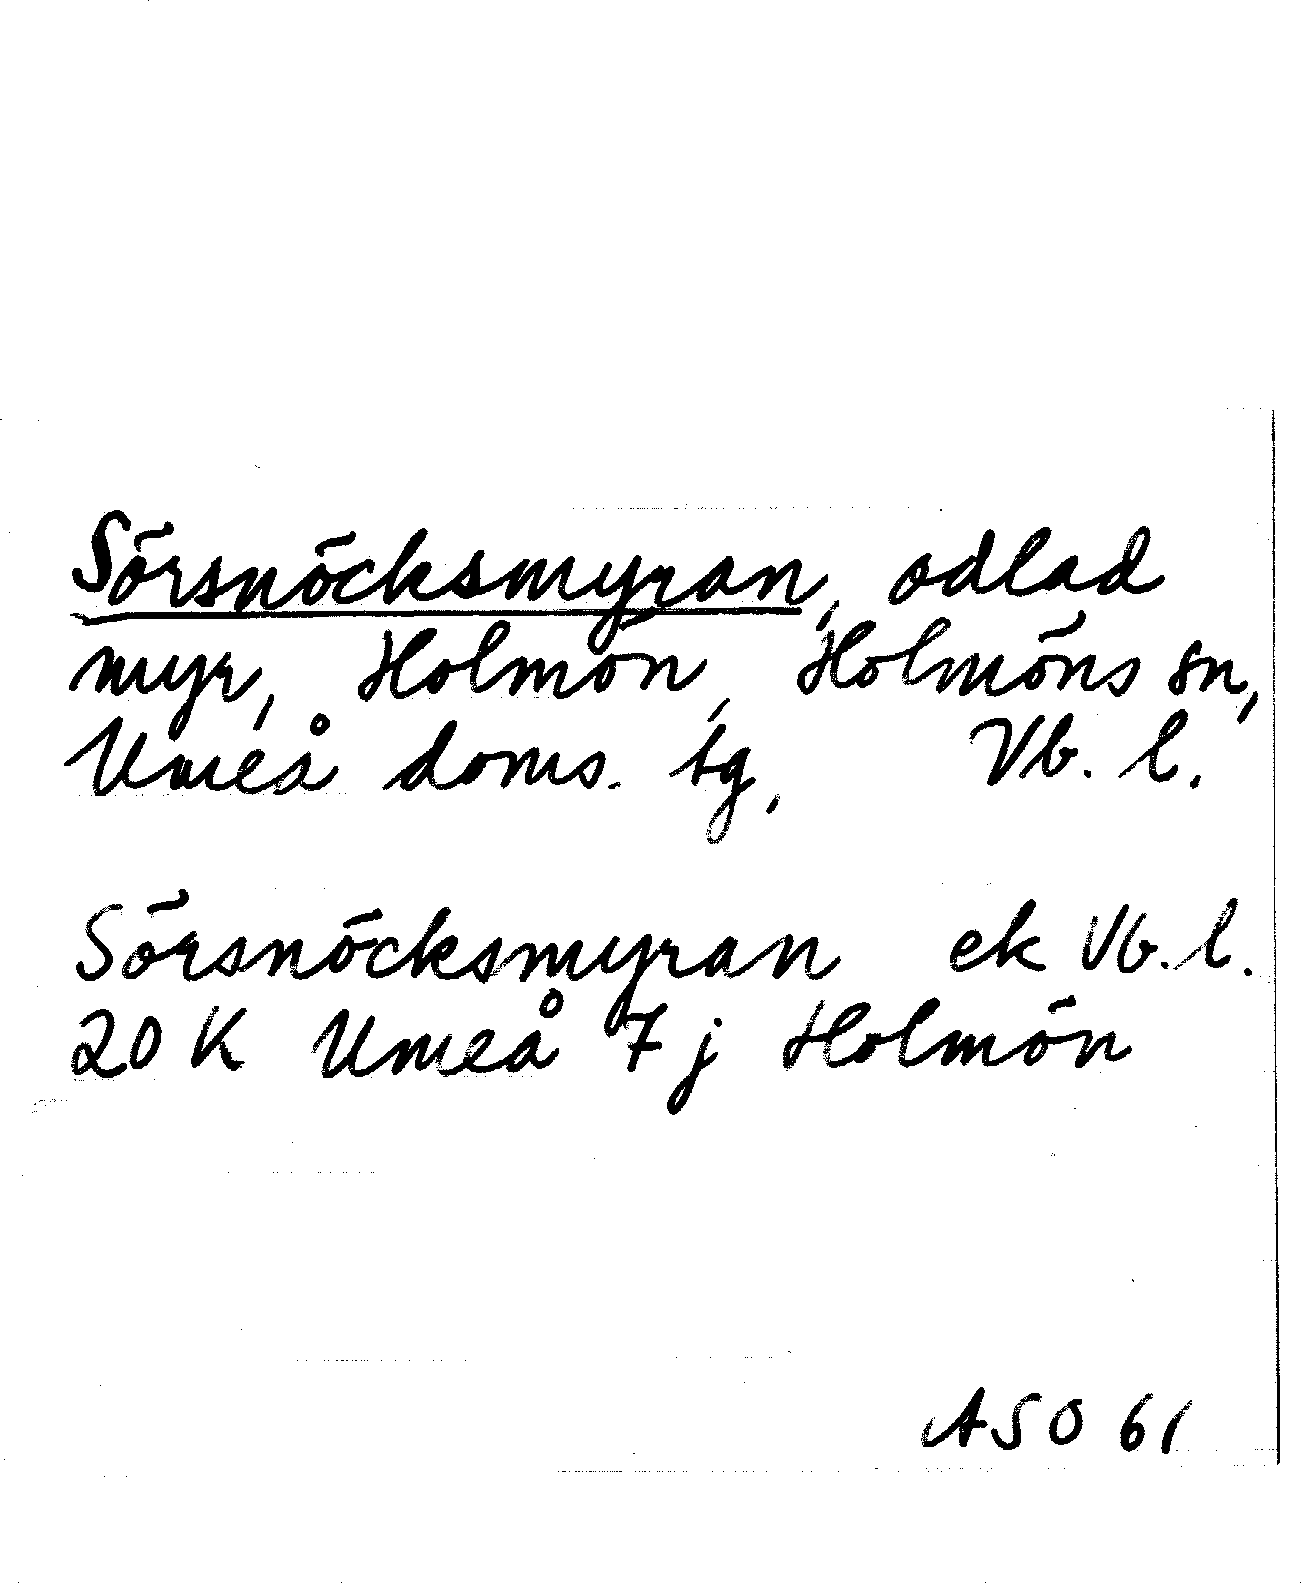 Sörsnöcksmyran, odlad
myr, Holmön, Holmöns sn,
Umeå doms. tg, Vb. l.
Sörsnöcksmyran ek Vb. l.
20 K Umeå 7 j Holmön
ASO 61